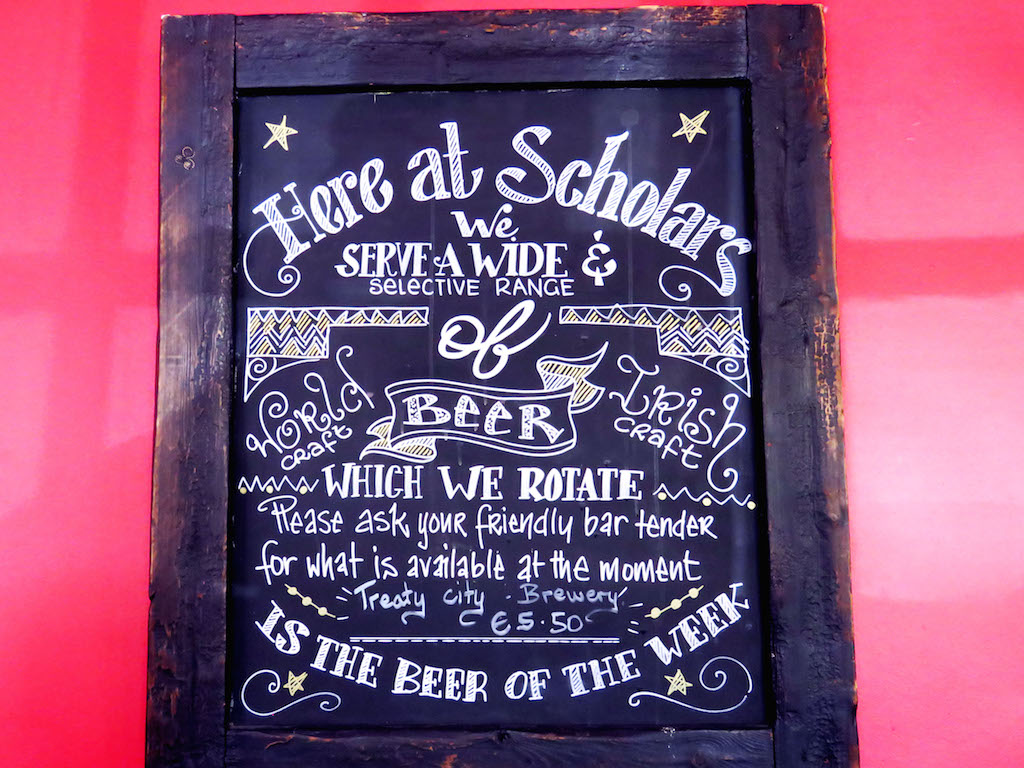 Here at Scholars
We
SERVE A WIDE &
SELECTIVE RANGE
of
WORLD CRAFT
BEER
IRISH CRAFT
WHICH WE ROTATE
Please ask your friendly bar tender
for what is available at the moment
Treaty City . Brewery
€5.50
IS THE BEER OF THE WEEK